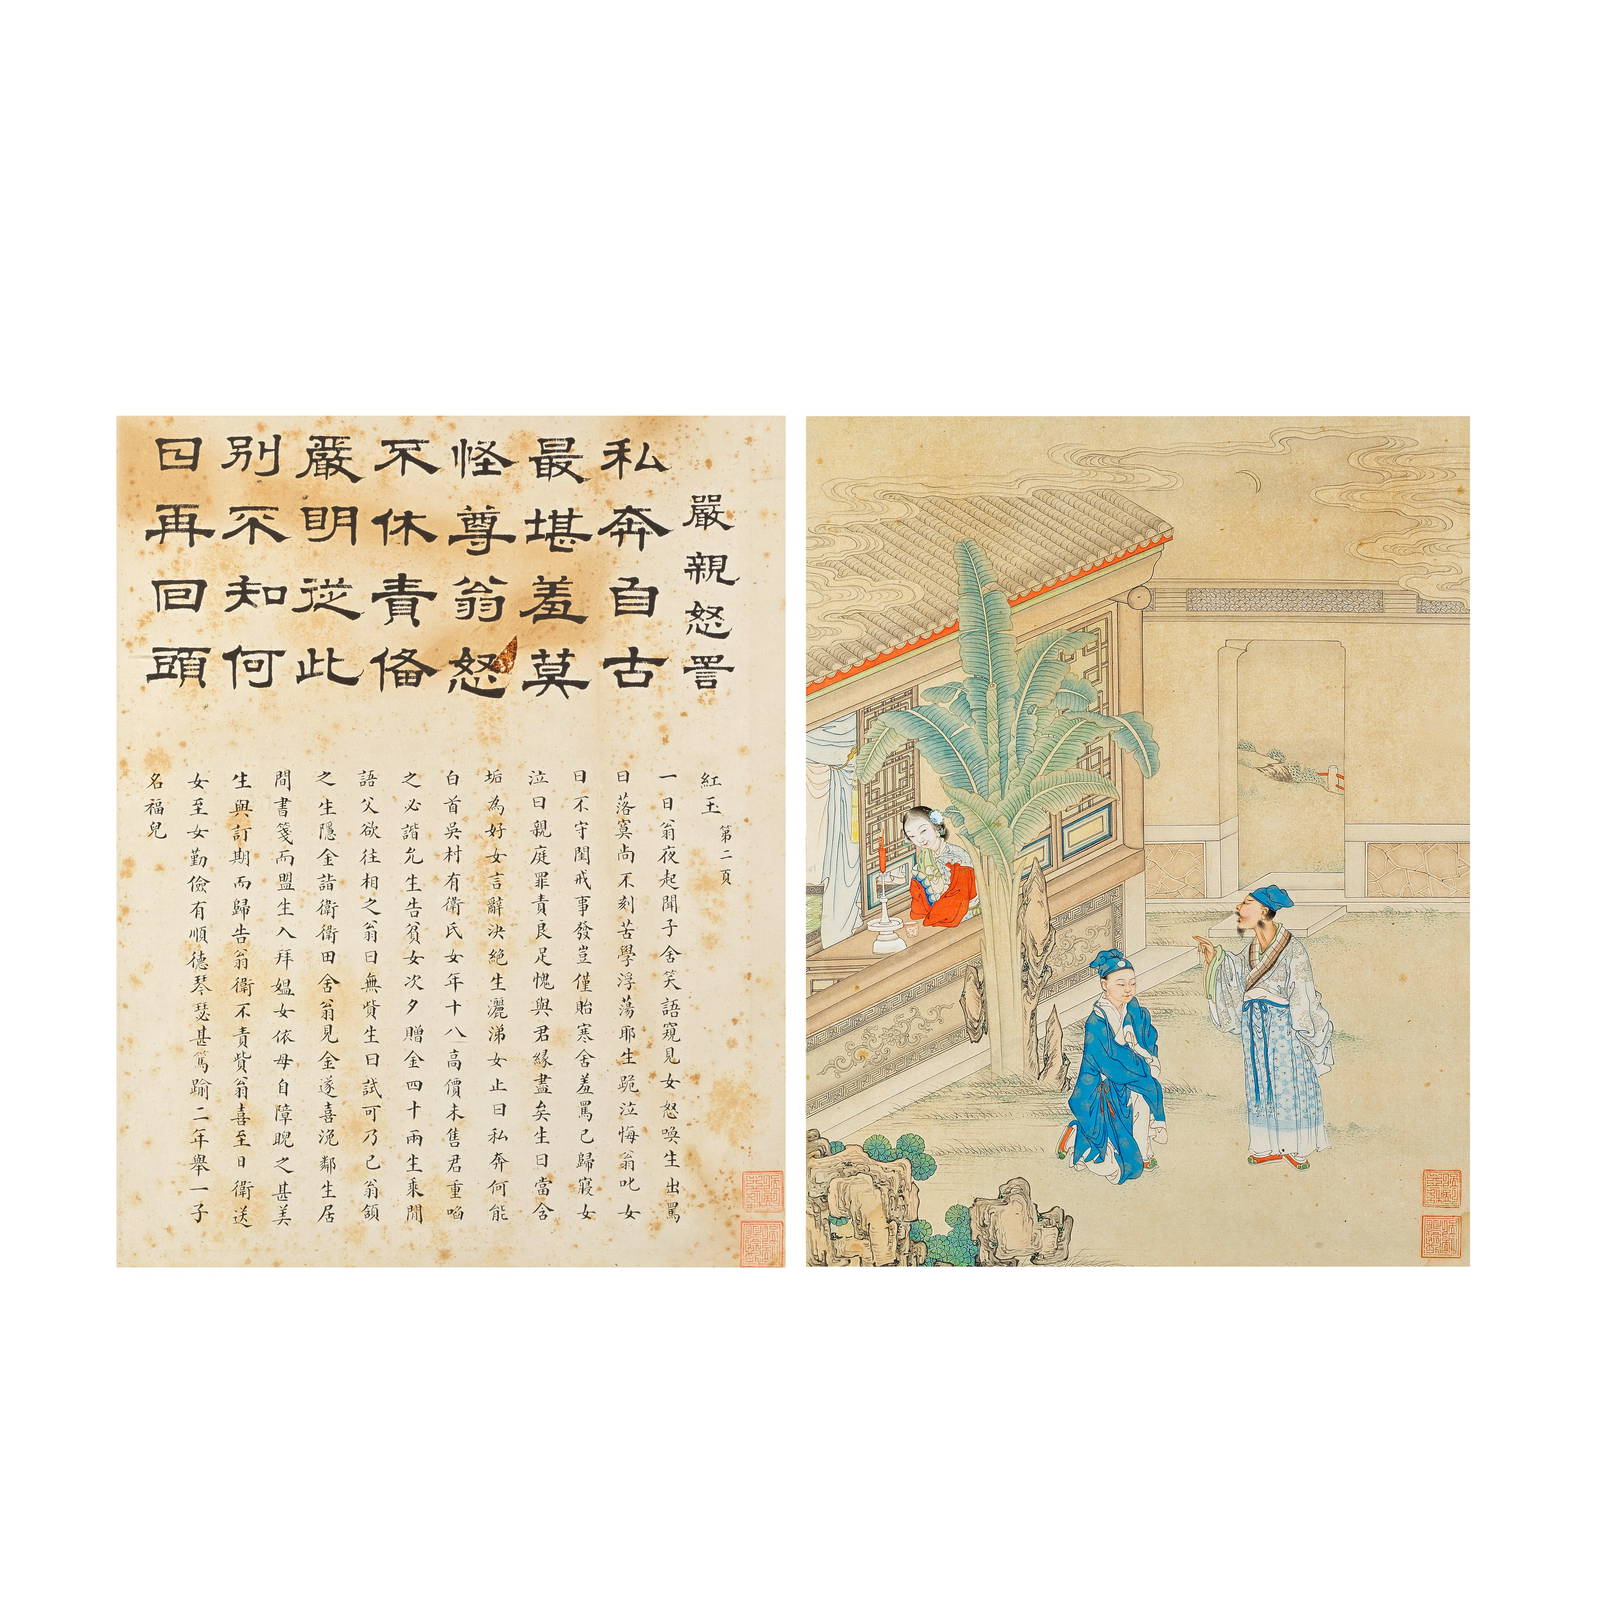 嚴親怒詈
私奔自古
最堪羞莫
怪尊翁怒
不休責備
嚴明從此
別不知何
日再回頭
紅玉 第二頁
一日翁夜起聞子舍笑語窺見女怒喚生出罵
曰落寞尚不刻苦學浮蕩耶生跪泣悔翁叱女
曰不守閨戒事發豈僅貽寒舍羞罵已歸寢女
泣曰親庭罪責良足愧與君緣盡矣生曰當含
垢為好女言辭決絕生灑涕女止曰私奔何能
白首吳村有衛氏女年十八高價未售君重啗
之必諧允生告貧女次夕贈金四十兩生乘間
語父欲往相之翁曰無貲生曰試可乃已翁頷
之生隱金詣衛衛田舍翁見金遂喜浼鄰生居
間書箋而盟生入拜媼女依母自障睨之甚美
生與訂期而歸告翁衛不責貲翁喜至日衛送
女至女勤儉有順德琴瑟甚篤踰二年舉一子
名福兒